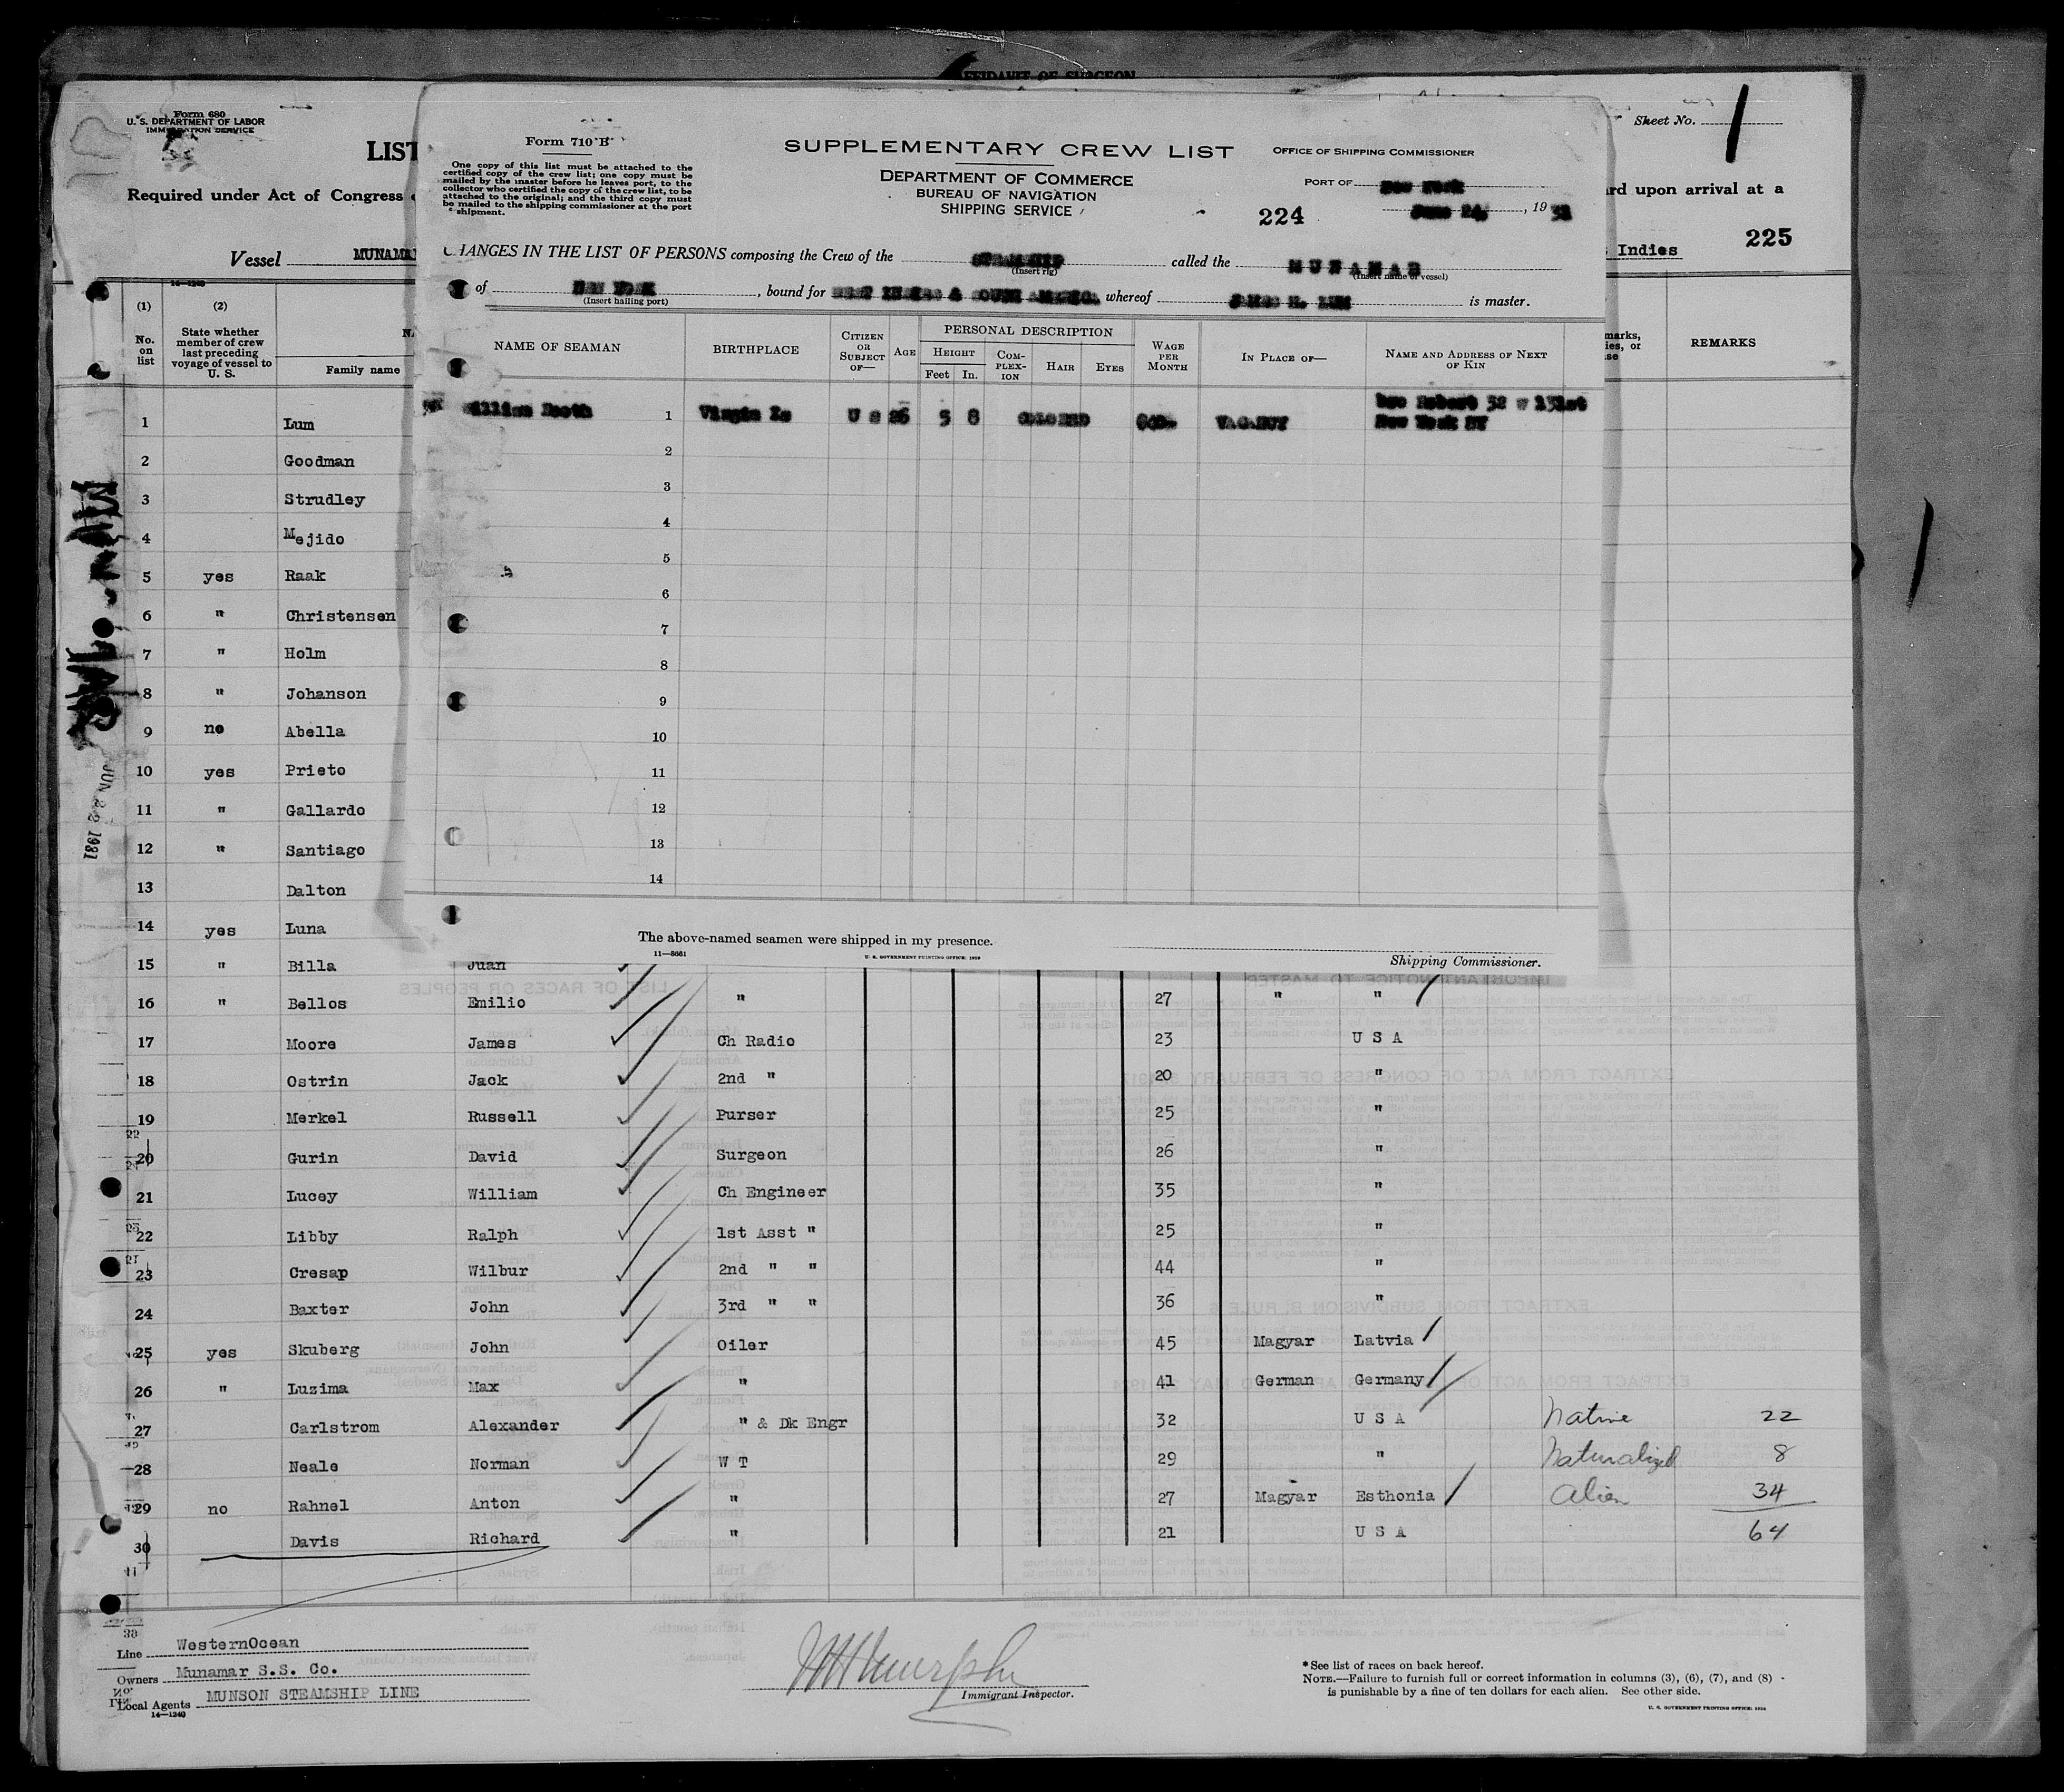 AFFIDAVIT OF SURGEON
Form 680
U. S. DEPARTMENT OF LABOR
IMMIGRATION SERVICE
LIST
Required under Act of Congress
Vessel MUNAMA
Sheet No. 1
rd upon arrival at a
Indies 225
Form 710 B
One copy of this list must be attached to the
certified copy of the crew list; one copy must be
mailed by the master before he leaves port, to the
collector who certified the copy of the crew list, to be
attached to the original; and the third copy must
be mailed to the shipping commissioner at the port
of shipment.
SUPPLEMENTARY CREW LIST
DEPARTMENT OF COMMERCE
BUREAU OF NAVIGATION
SHIPPING SERVICE
OFFICE OF SHIPPING COMMISSIONER
PORT OF New York
224
June 24, 1931
CHANGES IN THE LIST OF PERSONS composing the Crew of the STEAMSHIP called the MUNAMAR
(Insert rig) (Insert name of vessel)
of NEW YORK, bound for WEST INDIES & SOUTH AMERICA whereof JAMES H. LUM is master.
(Insert hailing port)
NAME OF SEAMAN BIRTHPLACE CITIZEN OR SUBJECT OF— AGE PERSONAL DESCRIPTION WAGE PER MONTH IN PLACE OF— NAME AND ADDRESS OF NEXT OF KIN
HEIGHT COMPLEXION HAIR EYES
Feet In.
William 1 Virgin Is U S 26 5 8 COLORED VACANCY Robert 52 W 131st
New York NY
2
3
4
5
6
7
8
9
10
11
12
13
14
The above-named seamen were shipped in my presence.
11—8661
U. S. GOVERNMENT PRINTING OFFICE: 1929
Shipping Commissioner.
14-1240
(1) (2)
No. on list
State whether member of crew last preceding voyage of vessel to U. S.
Family name
REMARKS
1 Lum
2 Goodman
3 Strudley
4 Mejido
5 yes Raak
6 " Christensen
7 " Holm
8 " Johanson
9 no Abella
10 yes Prieto
11 " Gallardo
12 " Santiago
13 Dalton
14 yes Luna
15 " Billa Juan
16 " Bellos Emilio " 27 " "
17 Moore James Ch Radio 23 U S A
18 Ostrin Jack 2nd " 20 "
19 Merkel Russell Purser 25 "
20 Gurin David Surgeon 26 "
21 Lucey William Ch Engineer 35 "
22 Libby Ralph 1st Asst " 25 "
23 Cresap Wilbur 2nd " " 44 "
24 Baxter John 3rd " " 36 "
25 yes Skuberg John Oiler 45 Magyar Latvia
26 " Luzima Max " 41 German Germany
27 Carlstrom Alexander " & Dk Engr 32 U S A Native 22
28 Neale Norman W T 29 " Naturalized 8
29 no Rahnel Anton " 27 Magyar Esthonia Alien 34
30 Davis Richard " 21 U S A 64
JUN 22 1931
Line WesternOcean
Owners Munamar S.S. Co.
Local Agents MUNSON STEAMSHIP LINE
14—1240
Immigrant Inspector.
* See list of races on back hereof.
NOTE.—Failure to furnish full or correct information in columns (3), (6), (7), and (8)
is punishable by a fine of ten dollars for each alien. See other side.
U. S. GOVERNMENT PRINTING OFFICE: 1930